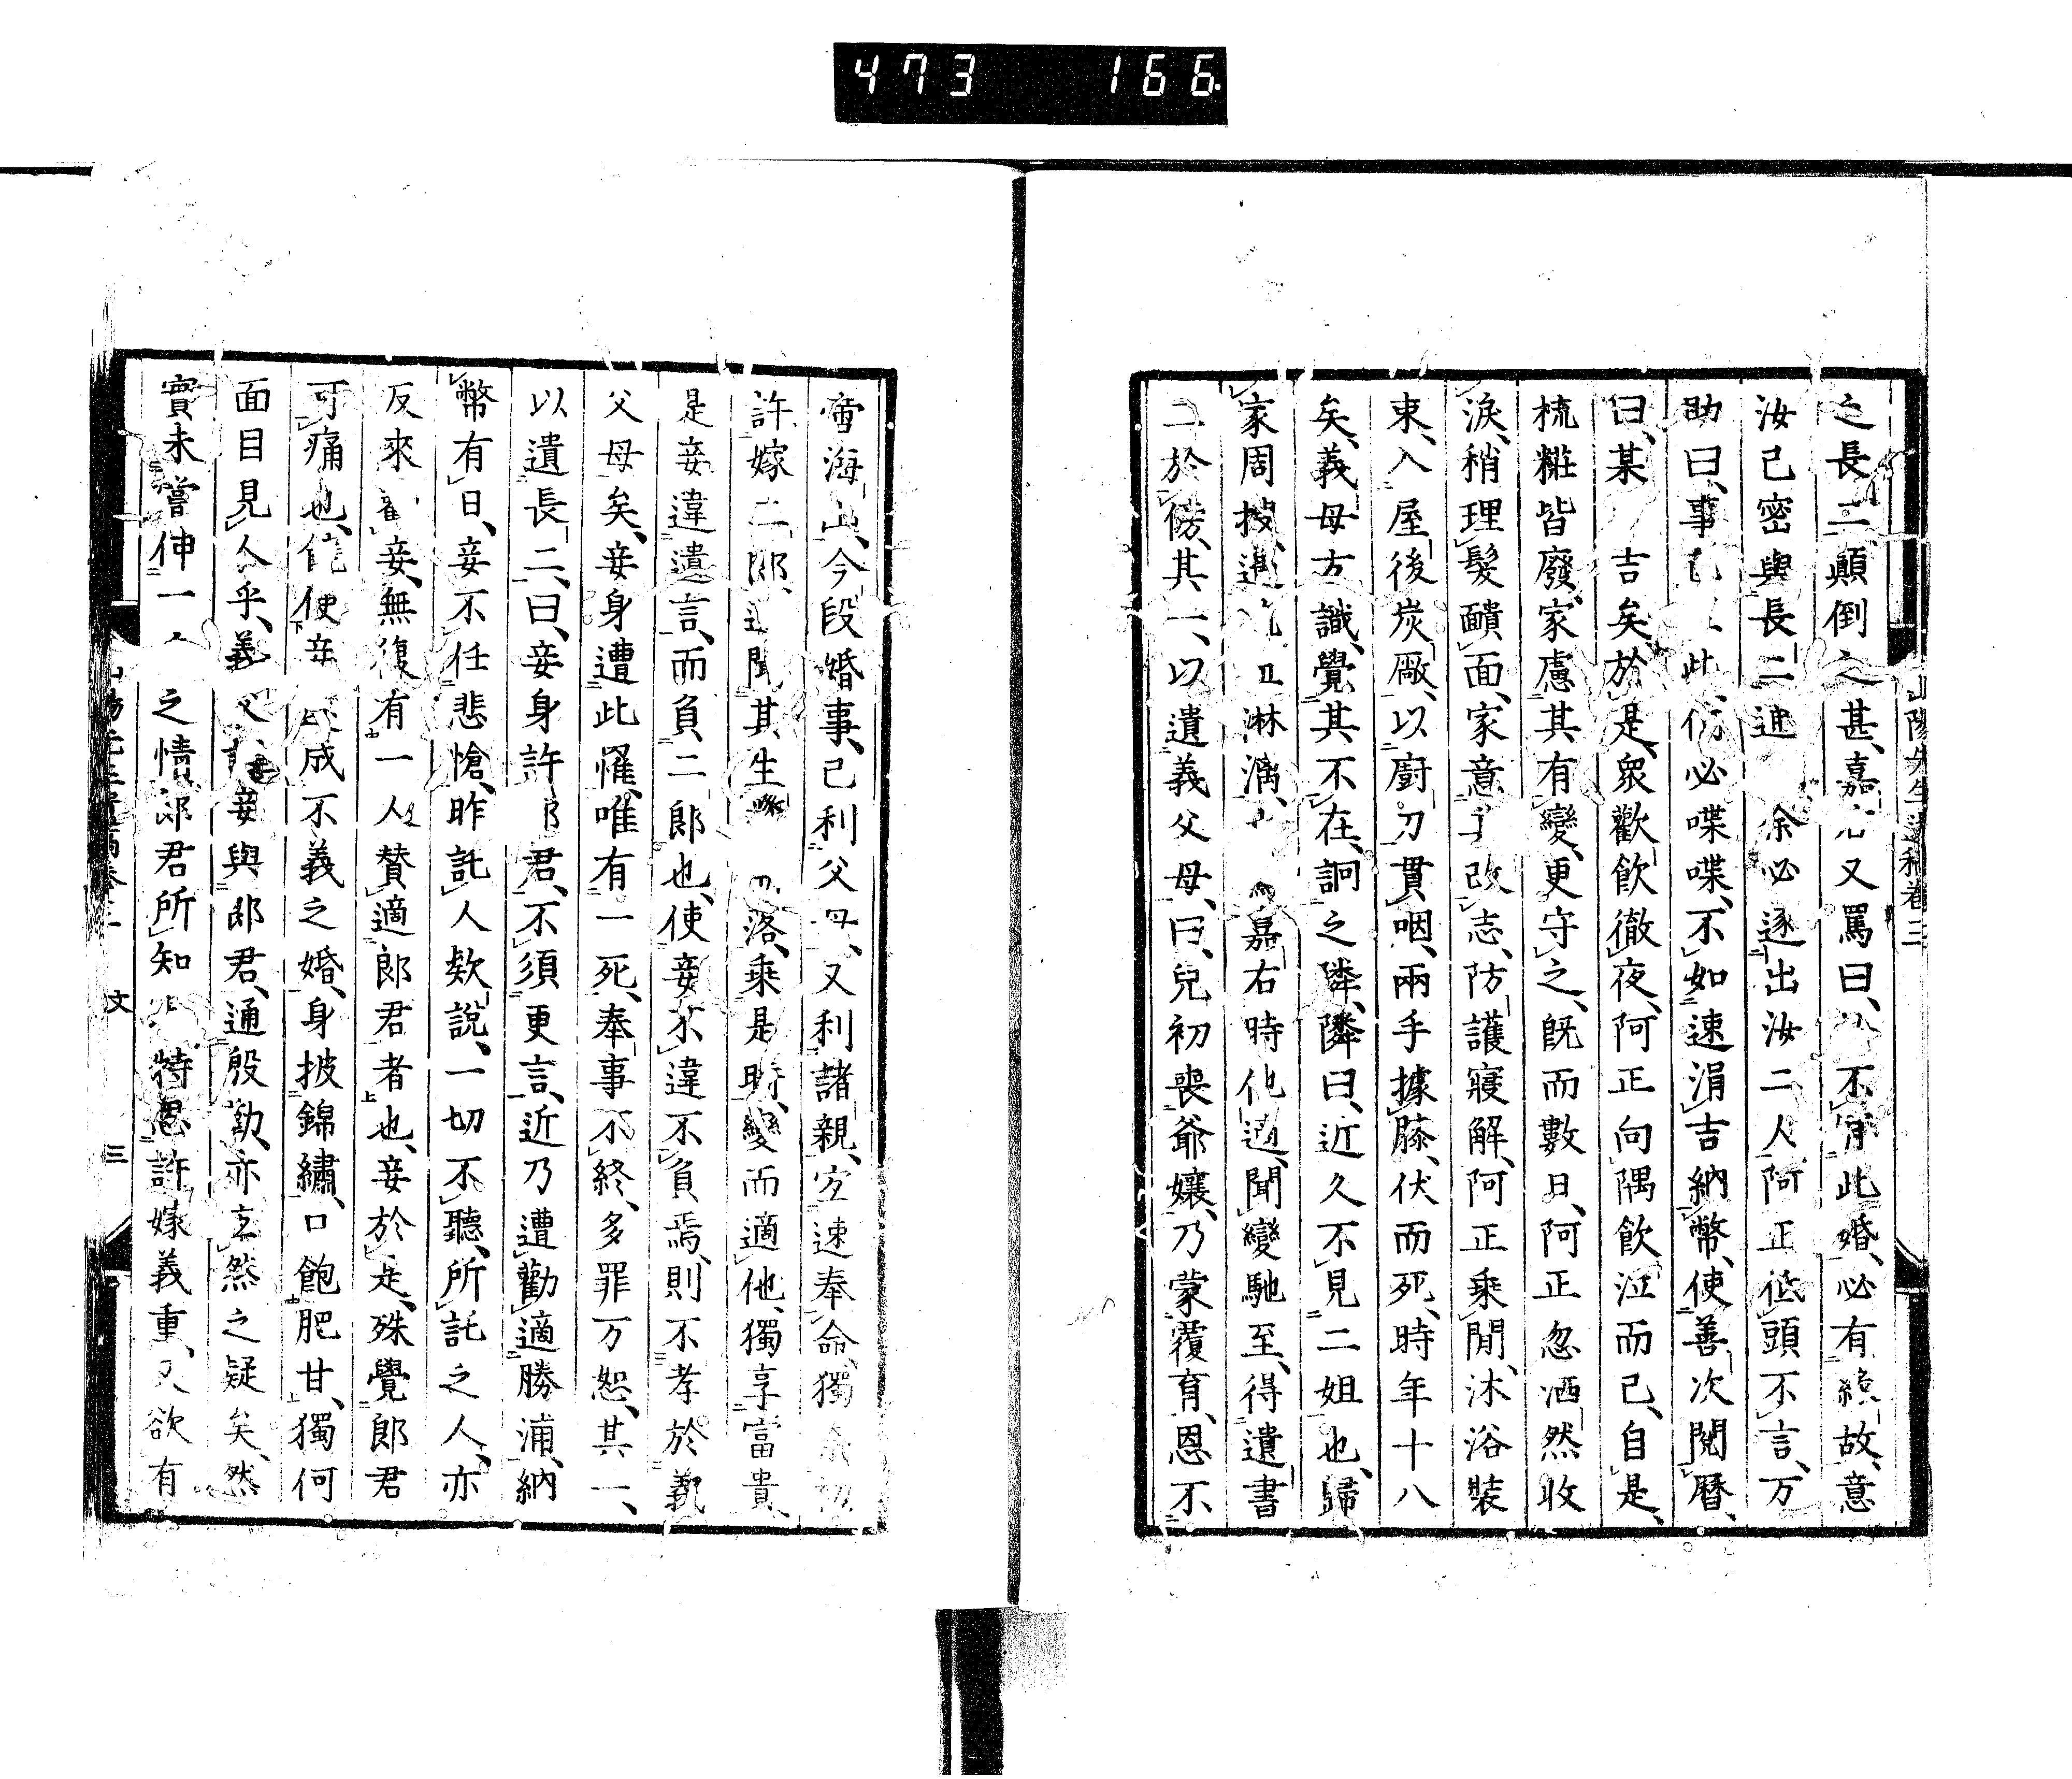 473 166.
山陽先生遺稿卷三
之長二顛倒之甚、嘉右又罵曰、不肯此婚、必有緣故、意
汝已密與長二通余必逐出汝二人、阿正低頭不言、万
助曰、事此、何必喋喋、不如速涓吉納幣、使善次閱曆、
曰、某吉矣、於是、衆歡飲徹夜、阿正向隅飲泣而已、自是、
梳粧皆廢、家慮其有變、更守之、既而數日、阿正忽洒然收
淚、稍理髮靧面、家意改志、防護寢解、阿正乘閒、沐浴裝
束、入屋後炭廠、以廚刀貫咽、兩手據膝、伏而死、時年十八
矣、義母方識覺其不在、詗之隣、隣曰、近久不見二姐也、歸
家周搜淋漓、嘉右時他適、聞變馳至、得遺書
二於傍、其一、以遺義父母、曰、兒初喪爺孃、乃蒙覆育、恩不
啻海山、今段婚事、已利父母、又利諸親、宜速奉命、獨
許嫁二郎、聞其生落、乘是時、變而適他、獨享富貴、
是妾違遺言、而負二郎也、使妾不違不負焉、則不孝於義
父母矣、妾身遭此懼、唯有一死、奉事不終、多罪万恕、其一、
以遺長二、曰、妾身許郎君、不須更言、近乃遭勸適勝浦、納
幣有日、妾不任悲愴、昨託人欸說、一切不聽、所託之人、亦
反來勸妾、無復有一人贊適郎君者也、妾於是、殊覺郎君
可痛也、使妾成不義之婚、身披錦繡、口飽肥甘、獨何
面目見人乎、義父妾與郎君、通殷勤、亦然之疑矣、然
實未嘗伸一之情、郎君所知特恩許嫁義重、又欲有
文
三